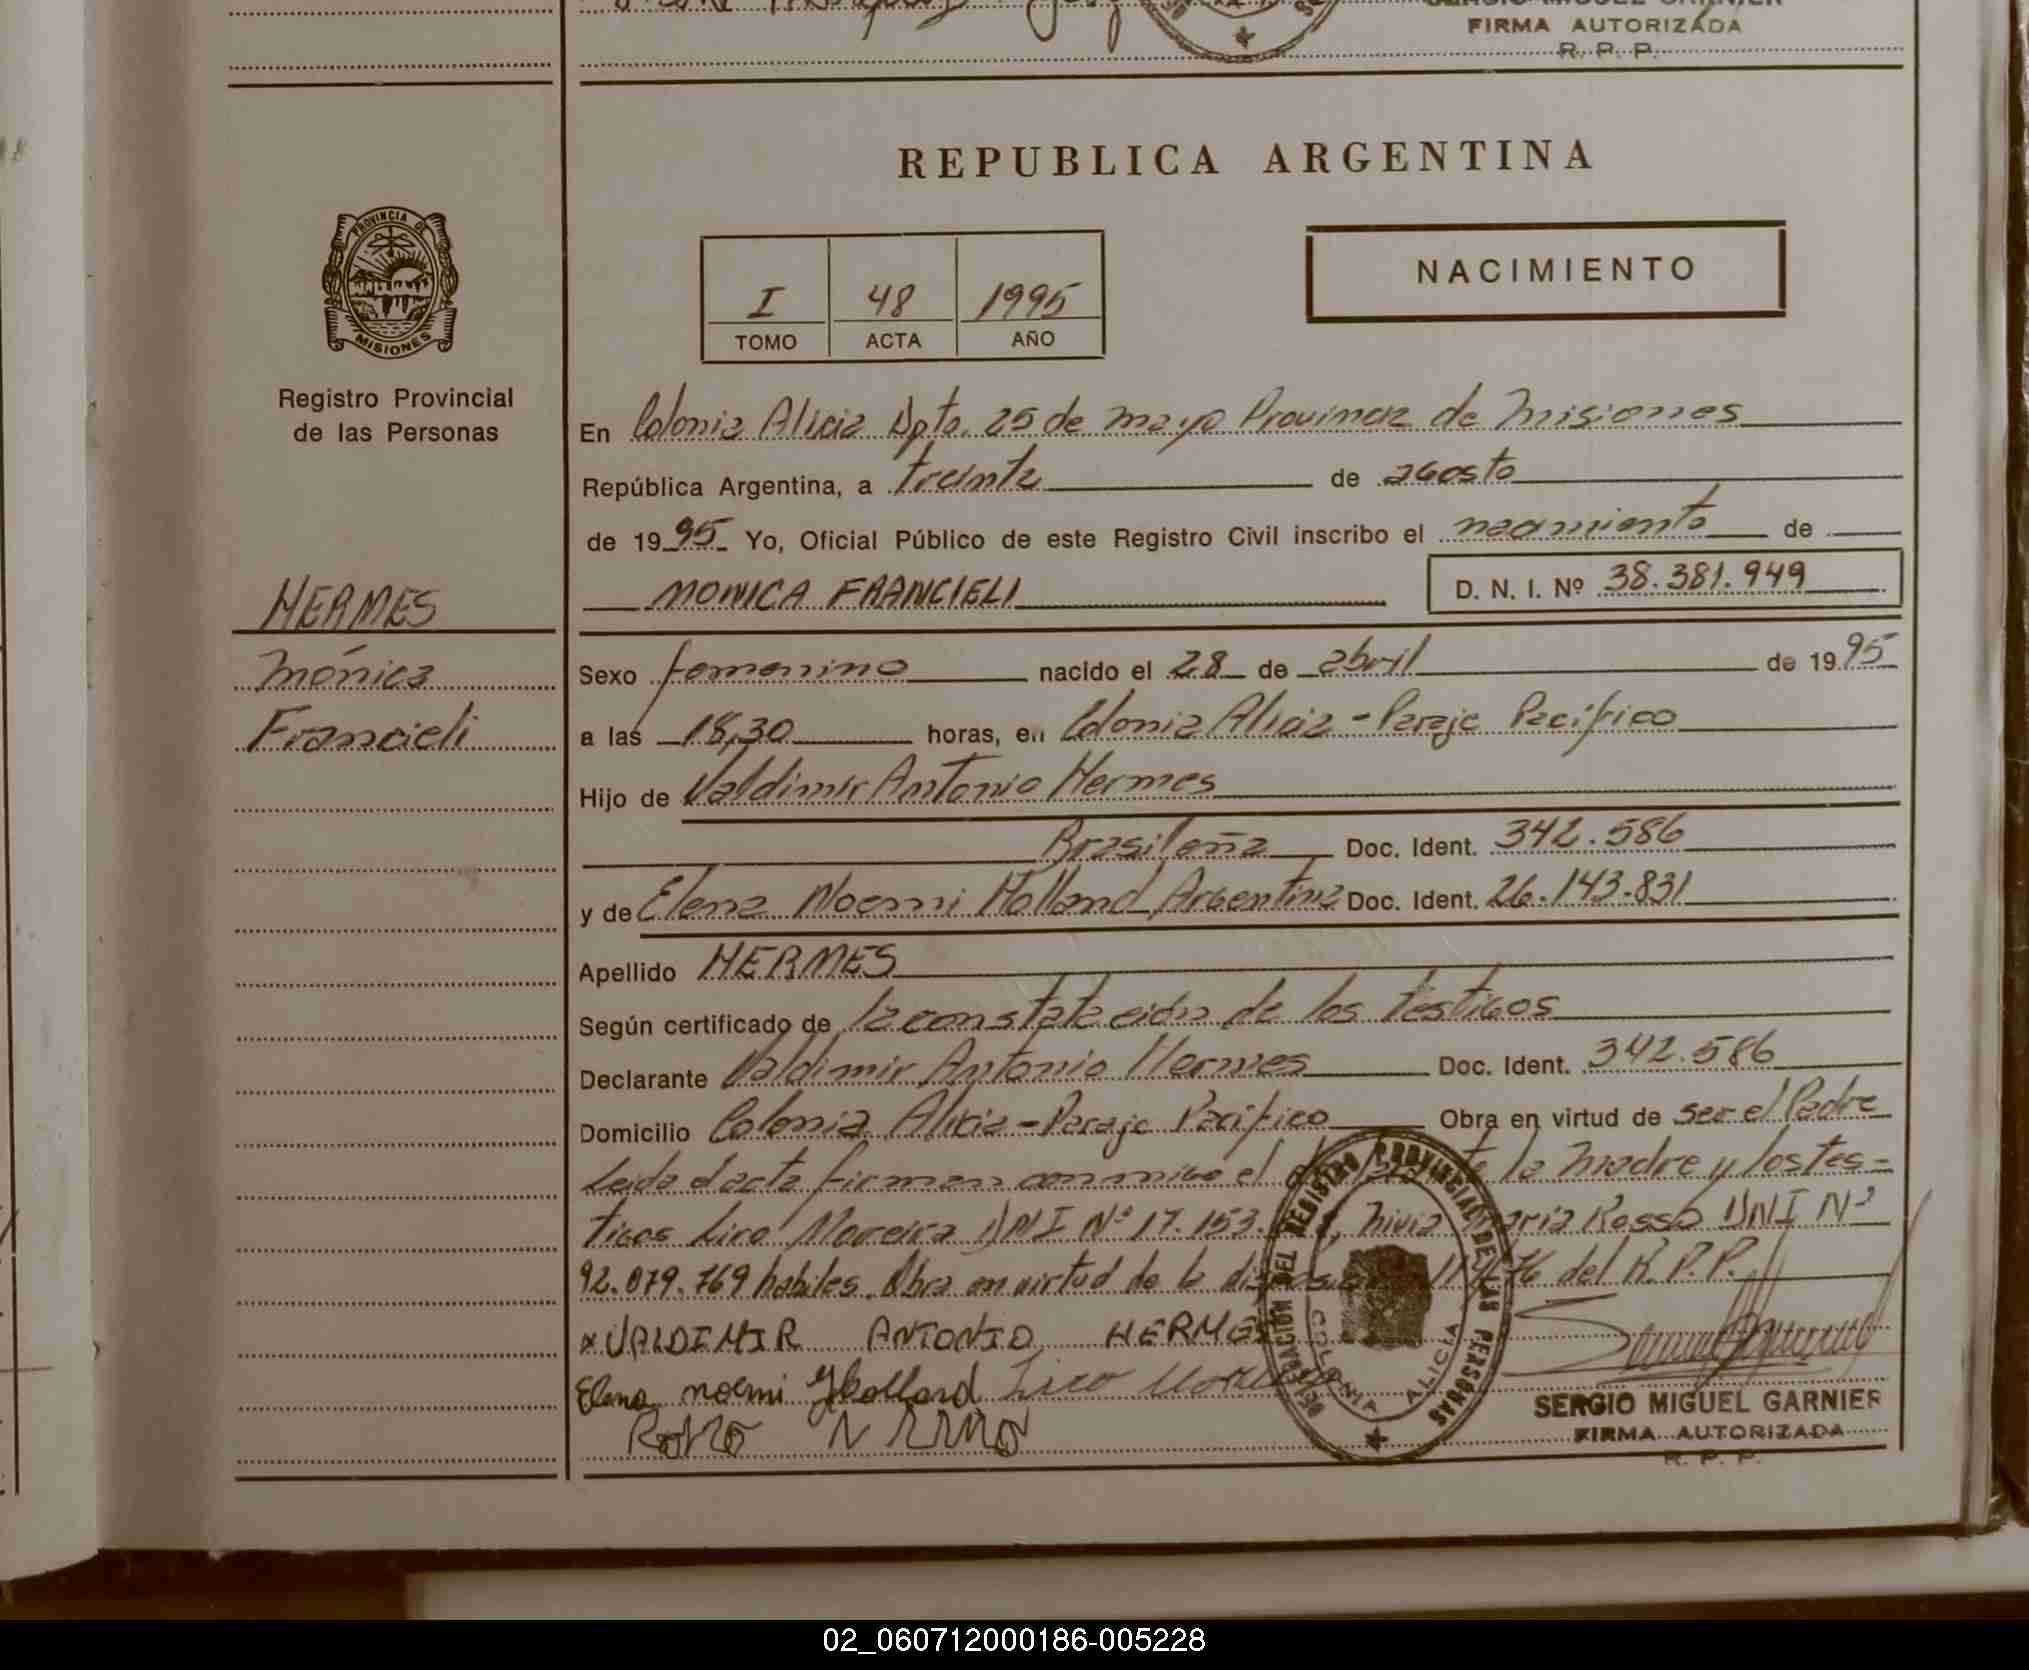 FIRMA AUTORIZADA
R. P. P.
REPUBLICA ARGENTINA
PROVINCIA DE
MISIONES
Registro Provincial
de las Personas
I 48 1995
TOMO ACTA AÑO
NACIMIENTO
En Colonia Alicia Dpto. 25 de mayo Provincia de Misiones
República Argentina, a treinta de agosto
de 1995 Yo, Oficial Público de este Registro Civil inscribo el nacimiento de
MONICA FRANCIELI D. N. I. Nº 38.381.949
HERMES
Mónica
Francieli
Sexo femenino nacido el 28 de abril de 1995
a las 18,30 horas, en Colonia Alicia - Paraje Pacifico
Hijo de Valdimir Antonio Hermes
Brasileña Doc. Ident. 342.586
y de Elena Noemi Holland Argentina Doc. Ident. 26.143.831
Apellido HERMES
Según certificado de la constatación de los testigos
Declarante Valdimir Antonio Hermes Doc. Ident. 342.586
Domicilio Colonia Alicia - Paraje Pacifico Obra en virtud de ser el Padre
Leida el acta firman conmigo el la Madre y los tes-
tigos Liro Moreira DNI Nº 17.153. Maria Rosso DNI Nº
92.079.769 habiles. Obra en virtud de la del R.P.P.
x VALDIMIR ANTONIO HERMES
Elena noemi Hollard Liro
DELEGACION DEL REGISTRO PROVINCIAL DE LAS PERSONAS
COLONIA ALICIA
SERGIO MIGUEL GARNIER
FIRMA AUTORIZADA
R. P. P.
02_060712000186-005228